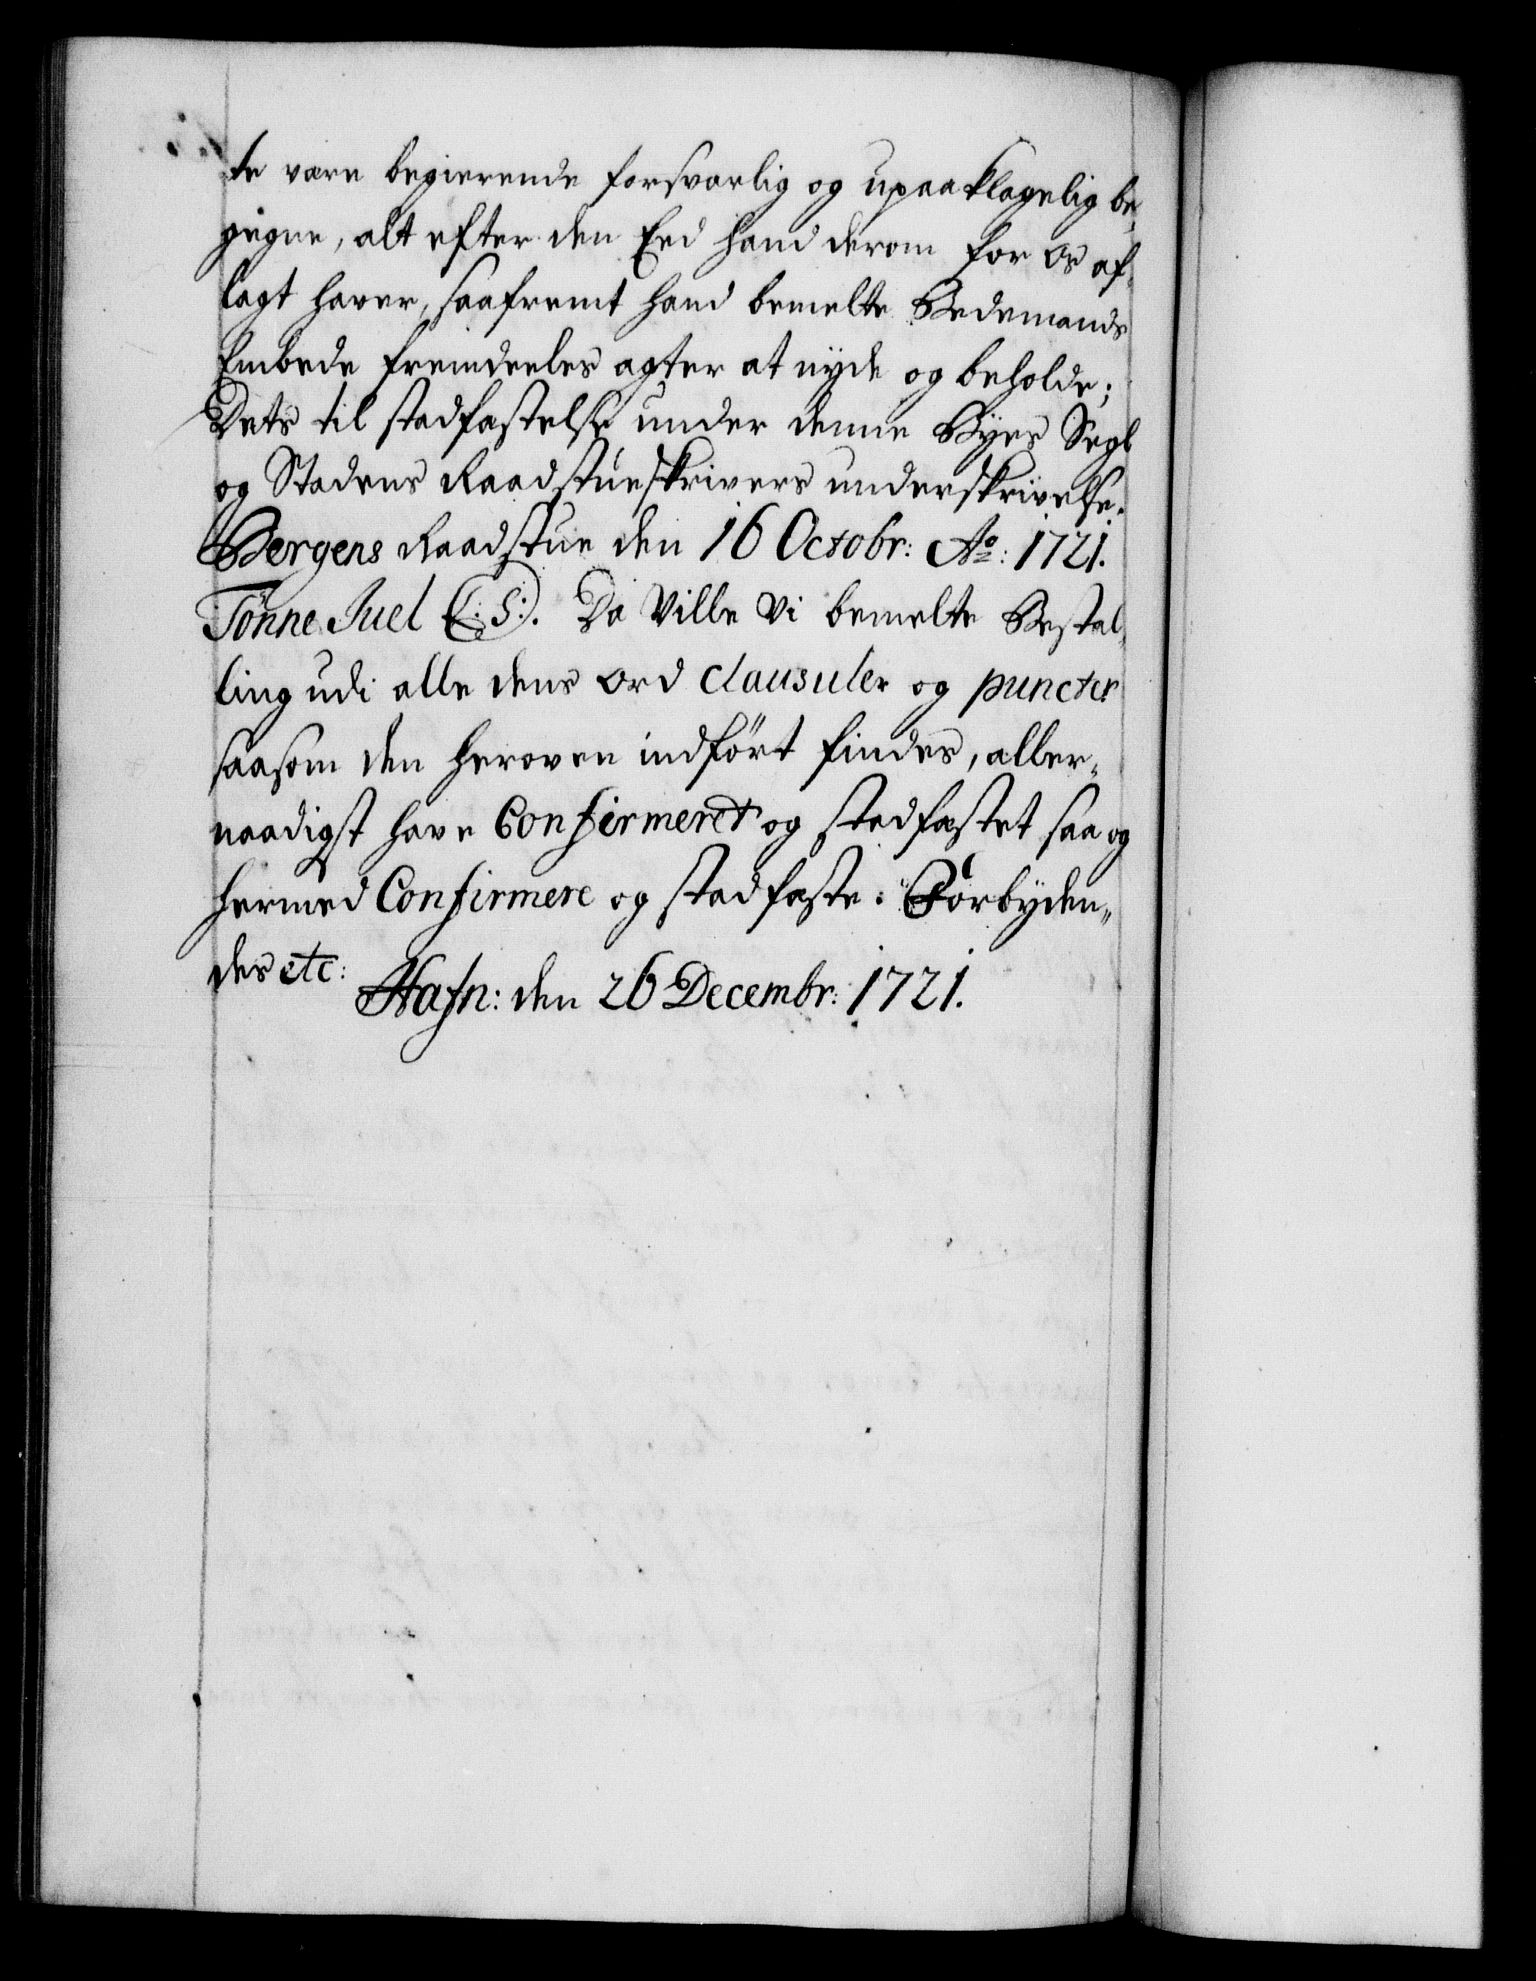 te være begierende forsvarlig og upaaklagelig be¸
giegne, alt efter den Eed hand derom for os af¸
lagt haver, saafremt hand bemelte Bedemands
Embede fremdeeles agter at nyde og beholde;
Dets til stadfæstelse under denne Byes Segl
og Stadens Raadstueskrivers underskrivelse.
Bergens Raadstue den 16 Octobr: Ao: 1721.
Tönne Juel (:S:). Da Ville Vi bemelte Bestal¸
ling udi alle dens ord clausuler og puncter
saasom den heroven indfört findes, aller¸
naadigst have Confirmeret og stadfæstet saa og
hermed Confirmere og stadfæste: Forbyden¸
des etc:
Hafn: den 26 Decembr: 1721.